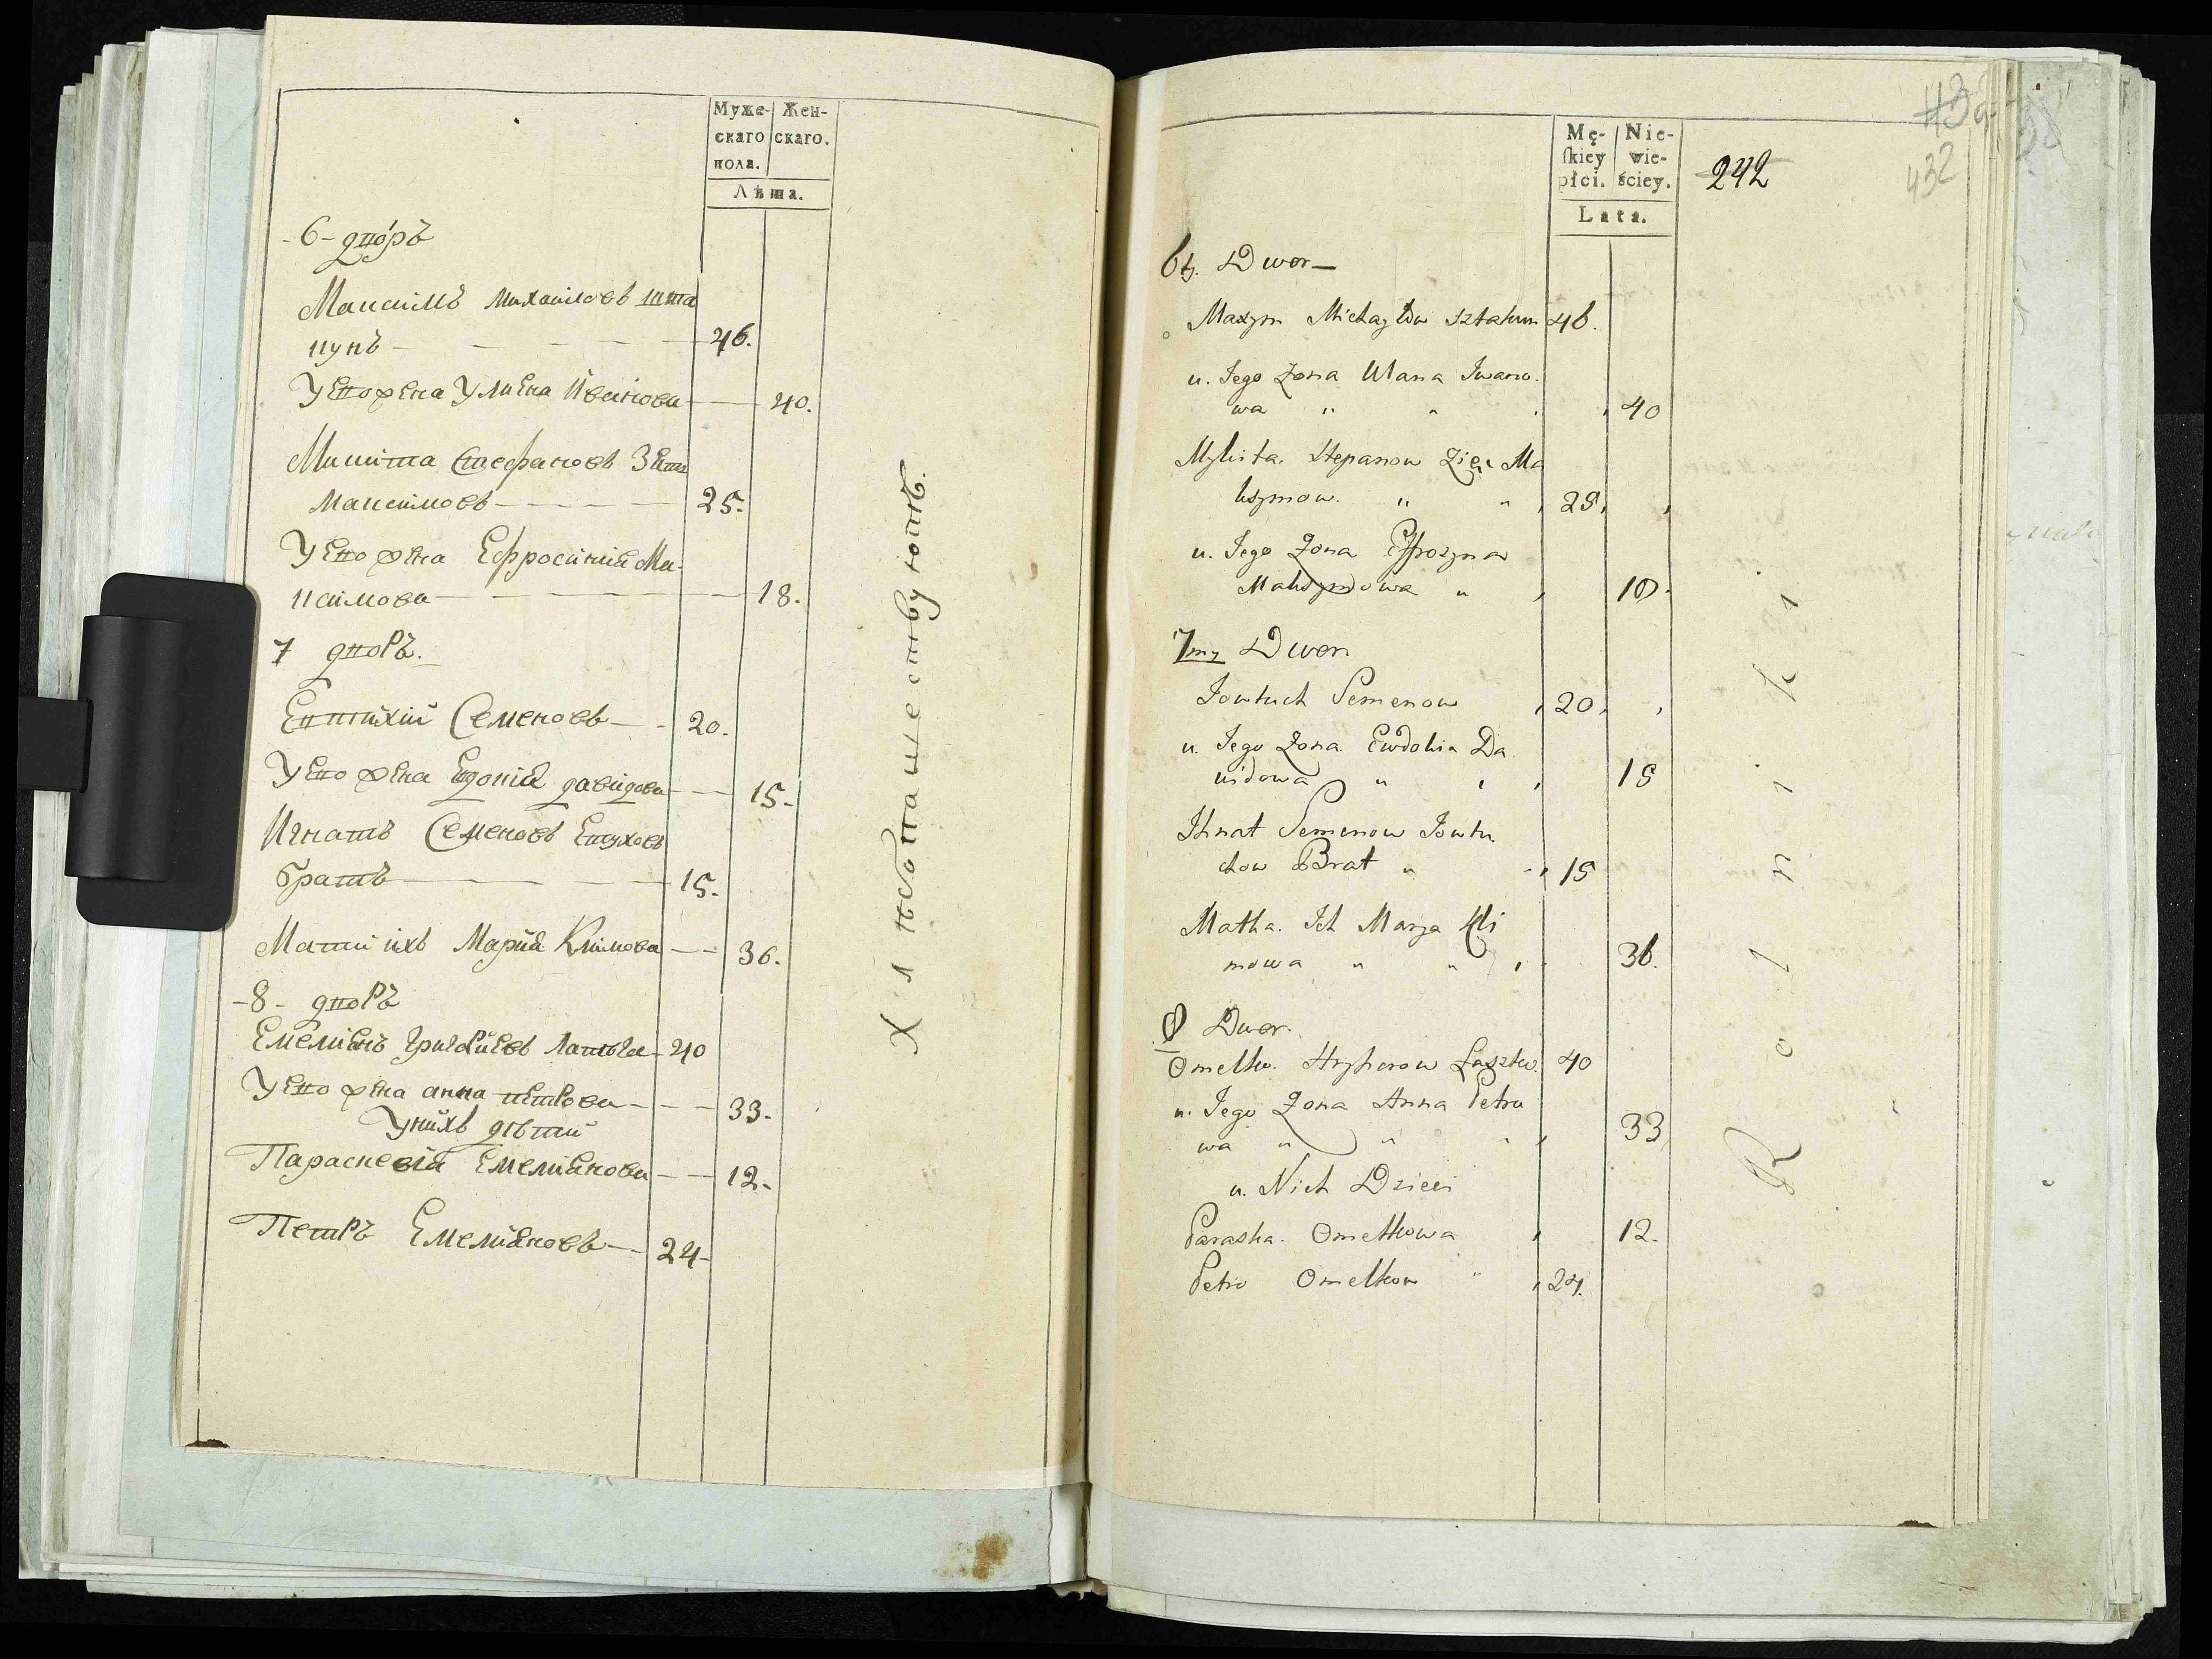 Муже-
скаго
пола.
Жен-
скаго.
Лѣта.
-6- дворъ
Максимъ Михайловъ шта
кунъ 46.
У Его жена Улиена Иванова 40.
Микита Стефановъ Зять
Максимовъ 25.
У Его жена Ефросиния Ма-
ксимова 18.
7 дворъ.
Евтихий Семеновъ 20.
У Его жена Евдокия давидова 15.
Игнатъ Семеновъ Евтуховъ
братъ 15.
Мати ихъ Мария Климова 36.
-8- дворъ
Емелиянъ Григориевъ 40
У Его жена анна петрова 33.
У нихъ дѣти
Параскевия Емелиянова 12.
Петръ Емелияновъ 24
Хлѣбопашествуютъ.
Mę-
ſkiey
płci.
Nie-
wie-
ściey.
Lata.
242
432
6ty. Dwor
Maxym Michayłow Sztakun 46.
u. Jego Zona Ulana Iwano.
wa 40
Mykita. Stepanow Zięc Ma
ksymow. 25.
u. Jego Zona Effrozyna
Maksymowa 18.
7my Dwor
Jowtuch Semenow 20.
u. Jego Zona Ewdokia Da
widowa 15
Ihnat Semenow Jowtu
chow Brat 15
Matka. Ich Marya Kli
mowa 36.
8 Dwor.
Omelko. Hryhorow 40
u. Jego Zona Anna Petro
wa 33
u. Nich Dzieci
Paraska. Omelkowa 12.
Petro Omelkow 24.
Rolniki